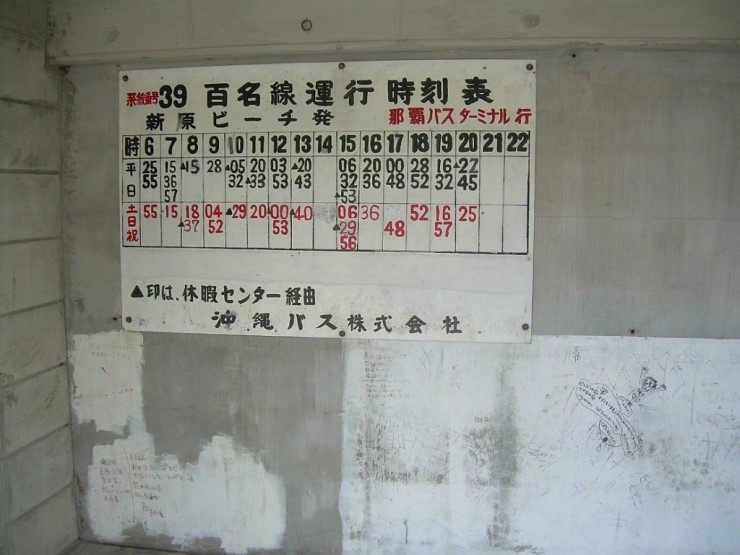 系統番号39 百名線運行時刻表
新原ビーチ発 那覇バスターミナル行
時 6 7 8 9 10 11 12 13 14 15 16 17 18 19 20 21 22
平日 25 15 ▲15 28 ▲05 20 03 ▲20 06 20 00 28 16 ▲27
55 36 32 ▲33 53 43 32 36 48 52 32 45
57 ▲53
土日祝 55 15 18 04 ▲29 20 ▲00 ▲40 06 36 52 16 25
▲37 52 53 ▲29 48 57
56
▲印は、休暇センター経由
沖縄バス株式会社